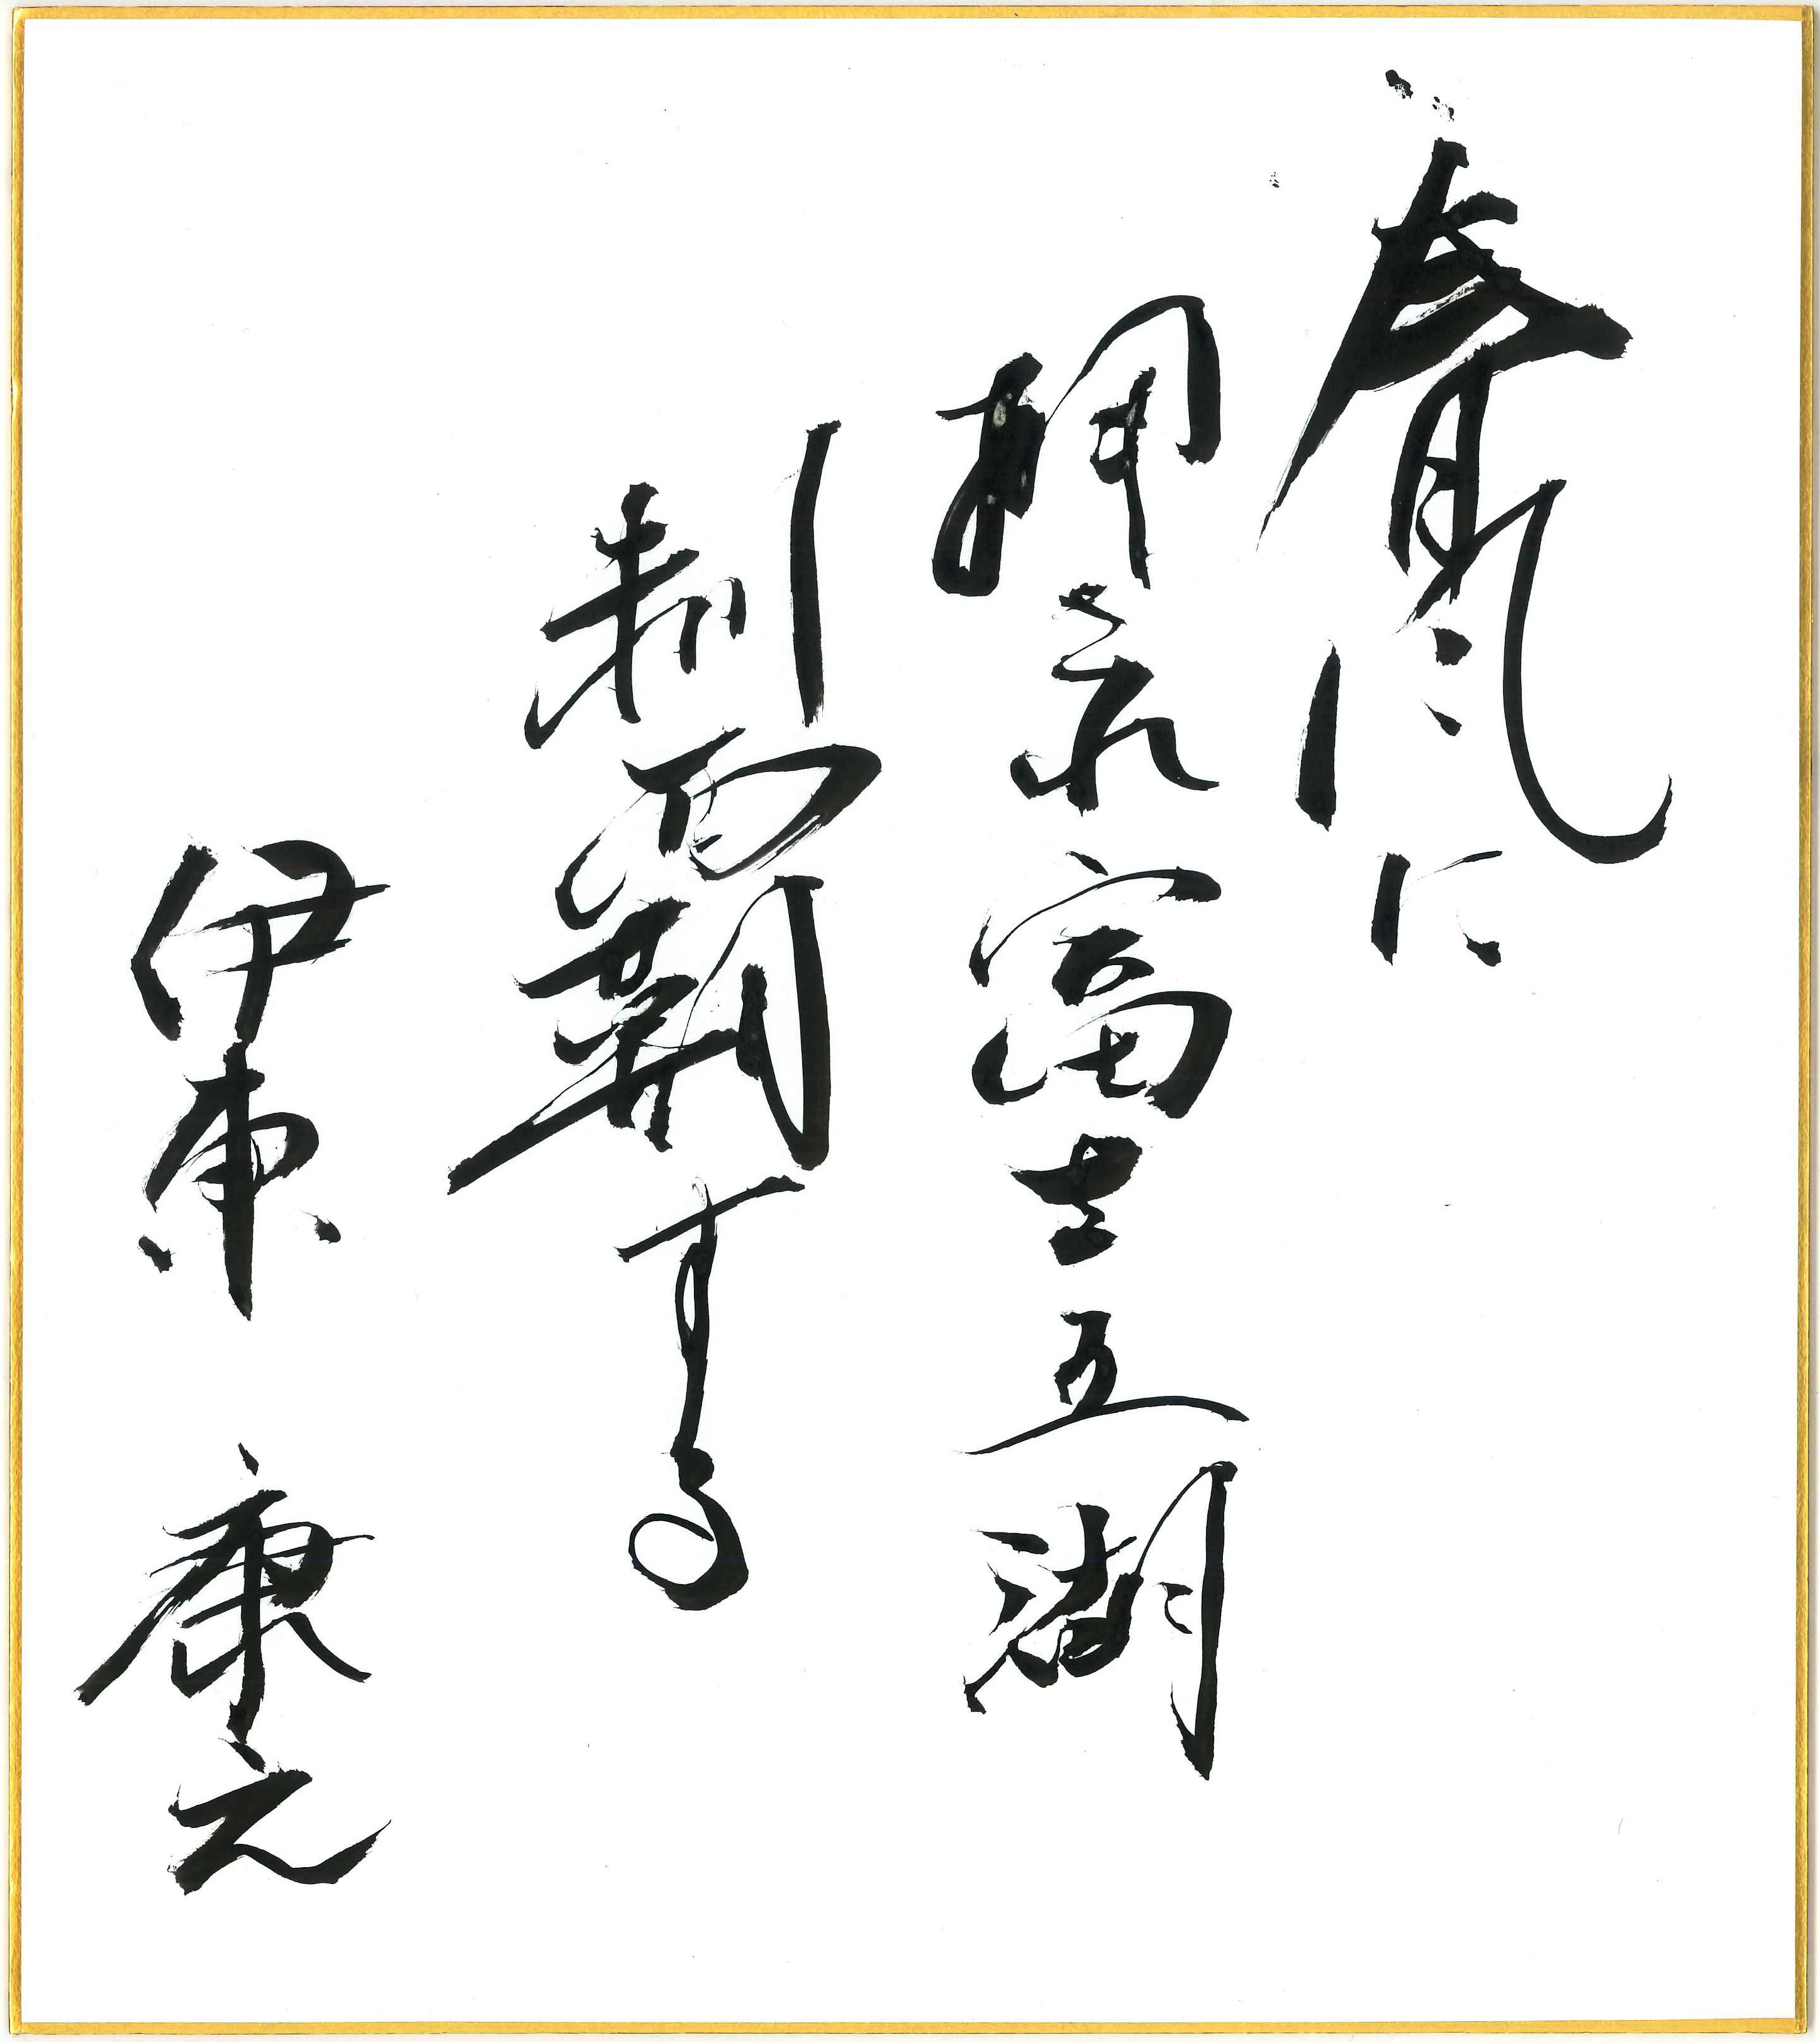 春風に
押され富士五湖
制覇する
伊東 康之